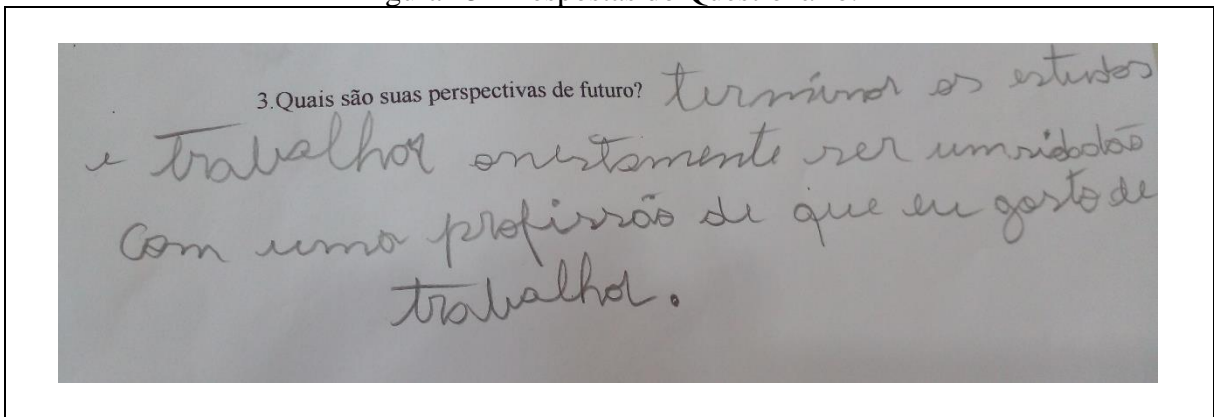 3.Quais são suas perspectivas de futuro? terminar os estudos
e trabalhar onestamente ser um sidadão
com uma profissão de que eu gosto de
trabalhar.